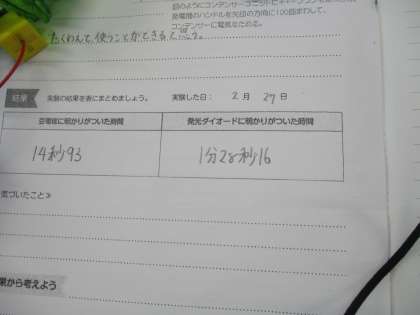 図のようにコンデンサーユニットとモーター
発電機のハンドルを矢印の方向に100回まわして、
コンデンサーに電気をためる。
たくわえて、使うことができると思う。
結果 実験の結果を表にまとめましょう。 実験した日: 2月 27日
豆電球に明かりがついた時間 発光ダイオードに明かりがついた時間
14秒93 1分28秒16
気づいたこと≫
果から考えよう